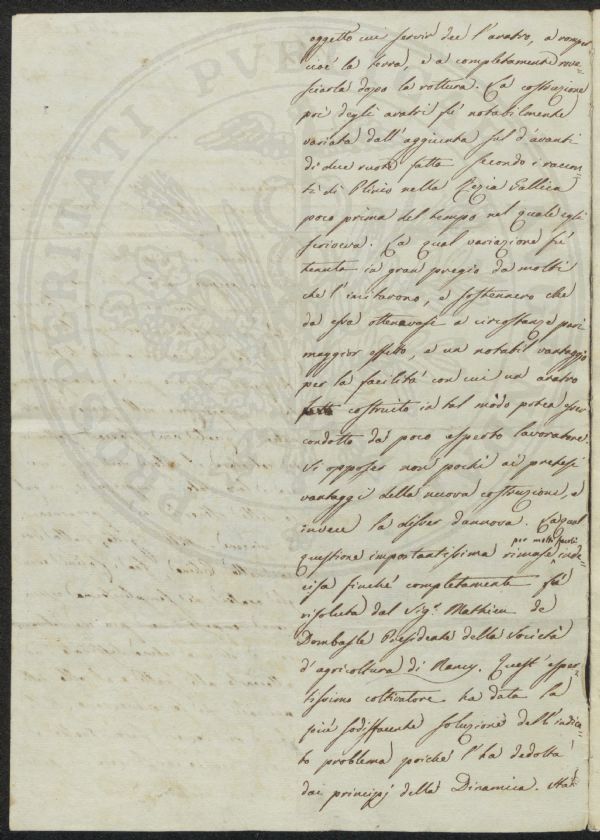 oggetto cui servir dee l'aratro, a romper
cioè la terra, e a completamente rove-
sciarla dopo la rottura. La costruzione
poi degli aratri fù notabilmente
variata dall'aggiunta sul d'avanti
di due ruote fatta secondo i raccon-
ti di Plinio nella Rezia Gallica
poco prima del tempo nel quale egli
scriveva. La qual variazione fù
tenuta in gran pregio da molti
che l'imitarono, e sostennero che
da essa ottenevasi a circostanze pari
maggior effetto, e un notabil vantaggio
per la facilità con cui un aratro
costruito in tal modo potea esser
condotto da poco esperto lavoratore.
Si opposer non pochi ai pretesi
vantaggi della nuova costruzione, e
invece la disser dannosa. La qual
per molti secoli
questione importantissima rimase inde-
cisa finchè completamente fù
risoluta dal Sigr. Mathieu de
Dombasle Presidente della Società
d'agricoltura di Nancy. Quest'esper-
tissimo coltivatore ha data la
più sodisfacente soluzione dell'indica-
to problema poichè l'ha dedotta
dai principj della Dinamica.
PROSPERITATI PUBLICAE